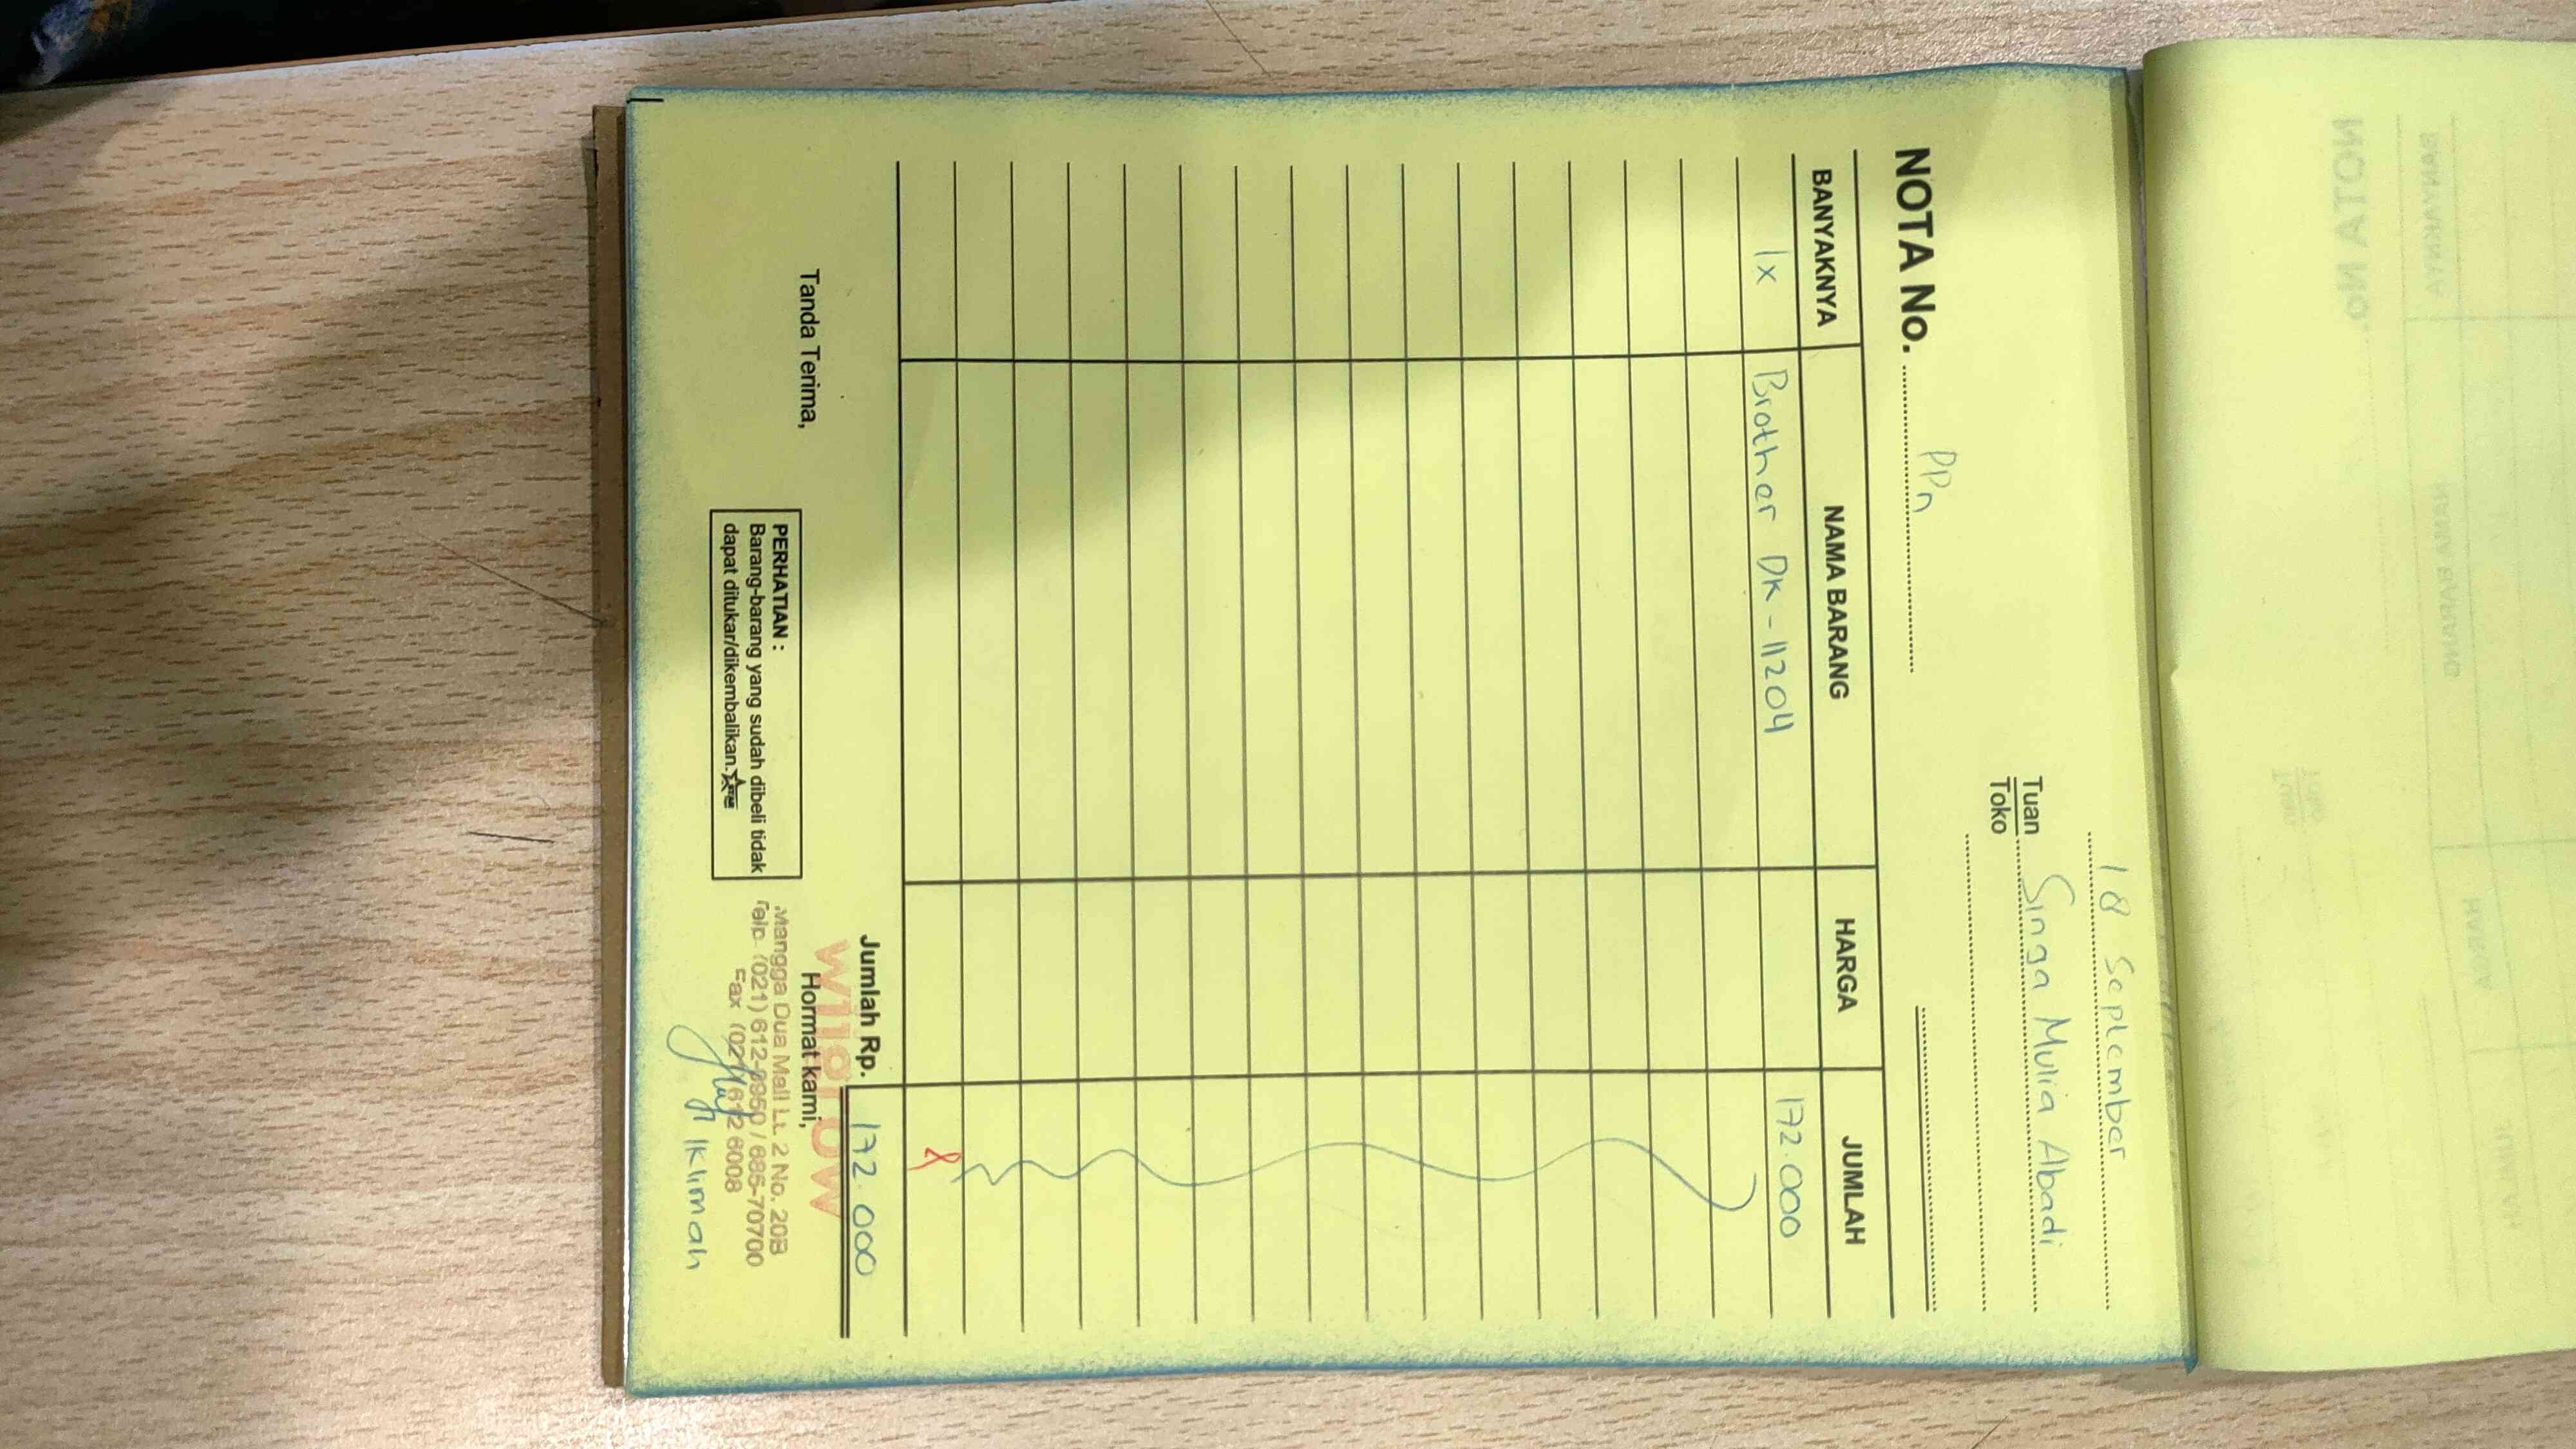 18 September
Tuan Singa Mulia Abadi
Toko
NOTA No. PPn
BANYAKNYA NAMA BARANG HARGA JUMLAH
1x Brother DK-11204 172.000
Jumlah Rp. 172.000
Tanda Terima, Hormat kami,
PERHATIAN :
Barang-barang yang sudah dibeli tidak
dapat ditukar/dikembalikan.
Mangga Dua Mall Lt. 2 No. 20B
Telp. (021) 612-9950 / 685-70700
Fax (021) 612 6008
Iklimah
NOTA No.
BANYAKNYA
NAMA BARANG
HARGA
JUMLAH